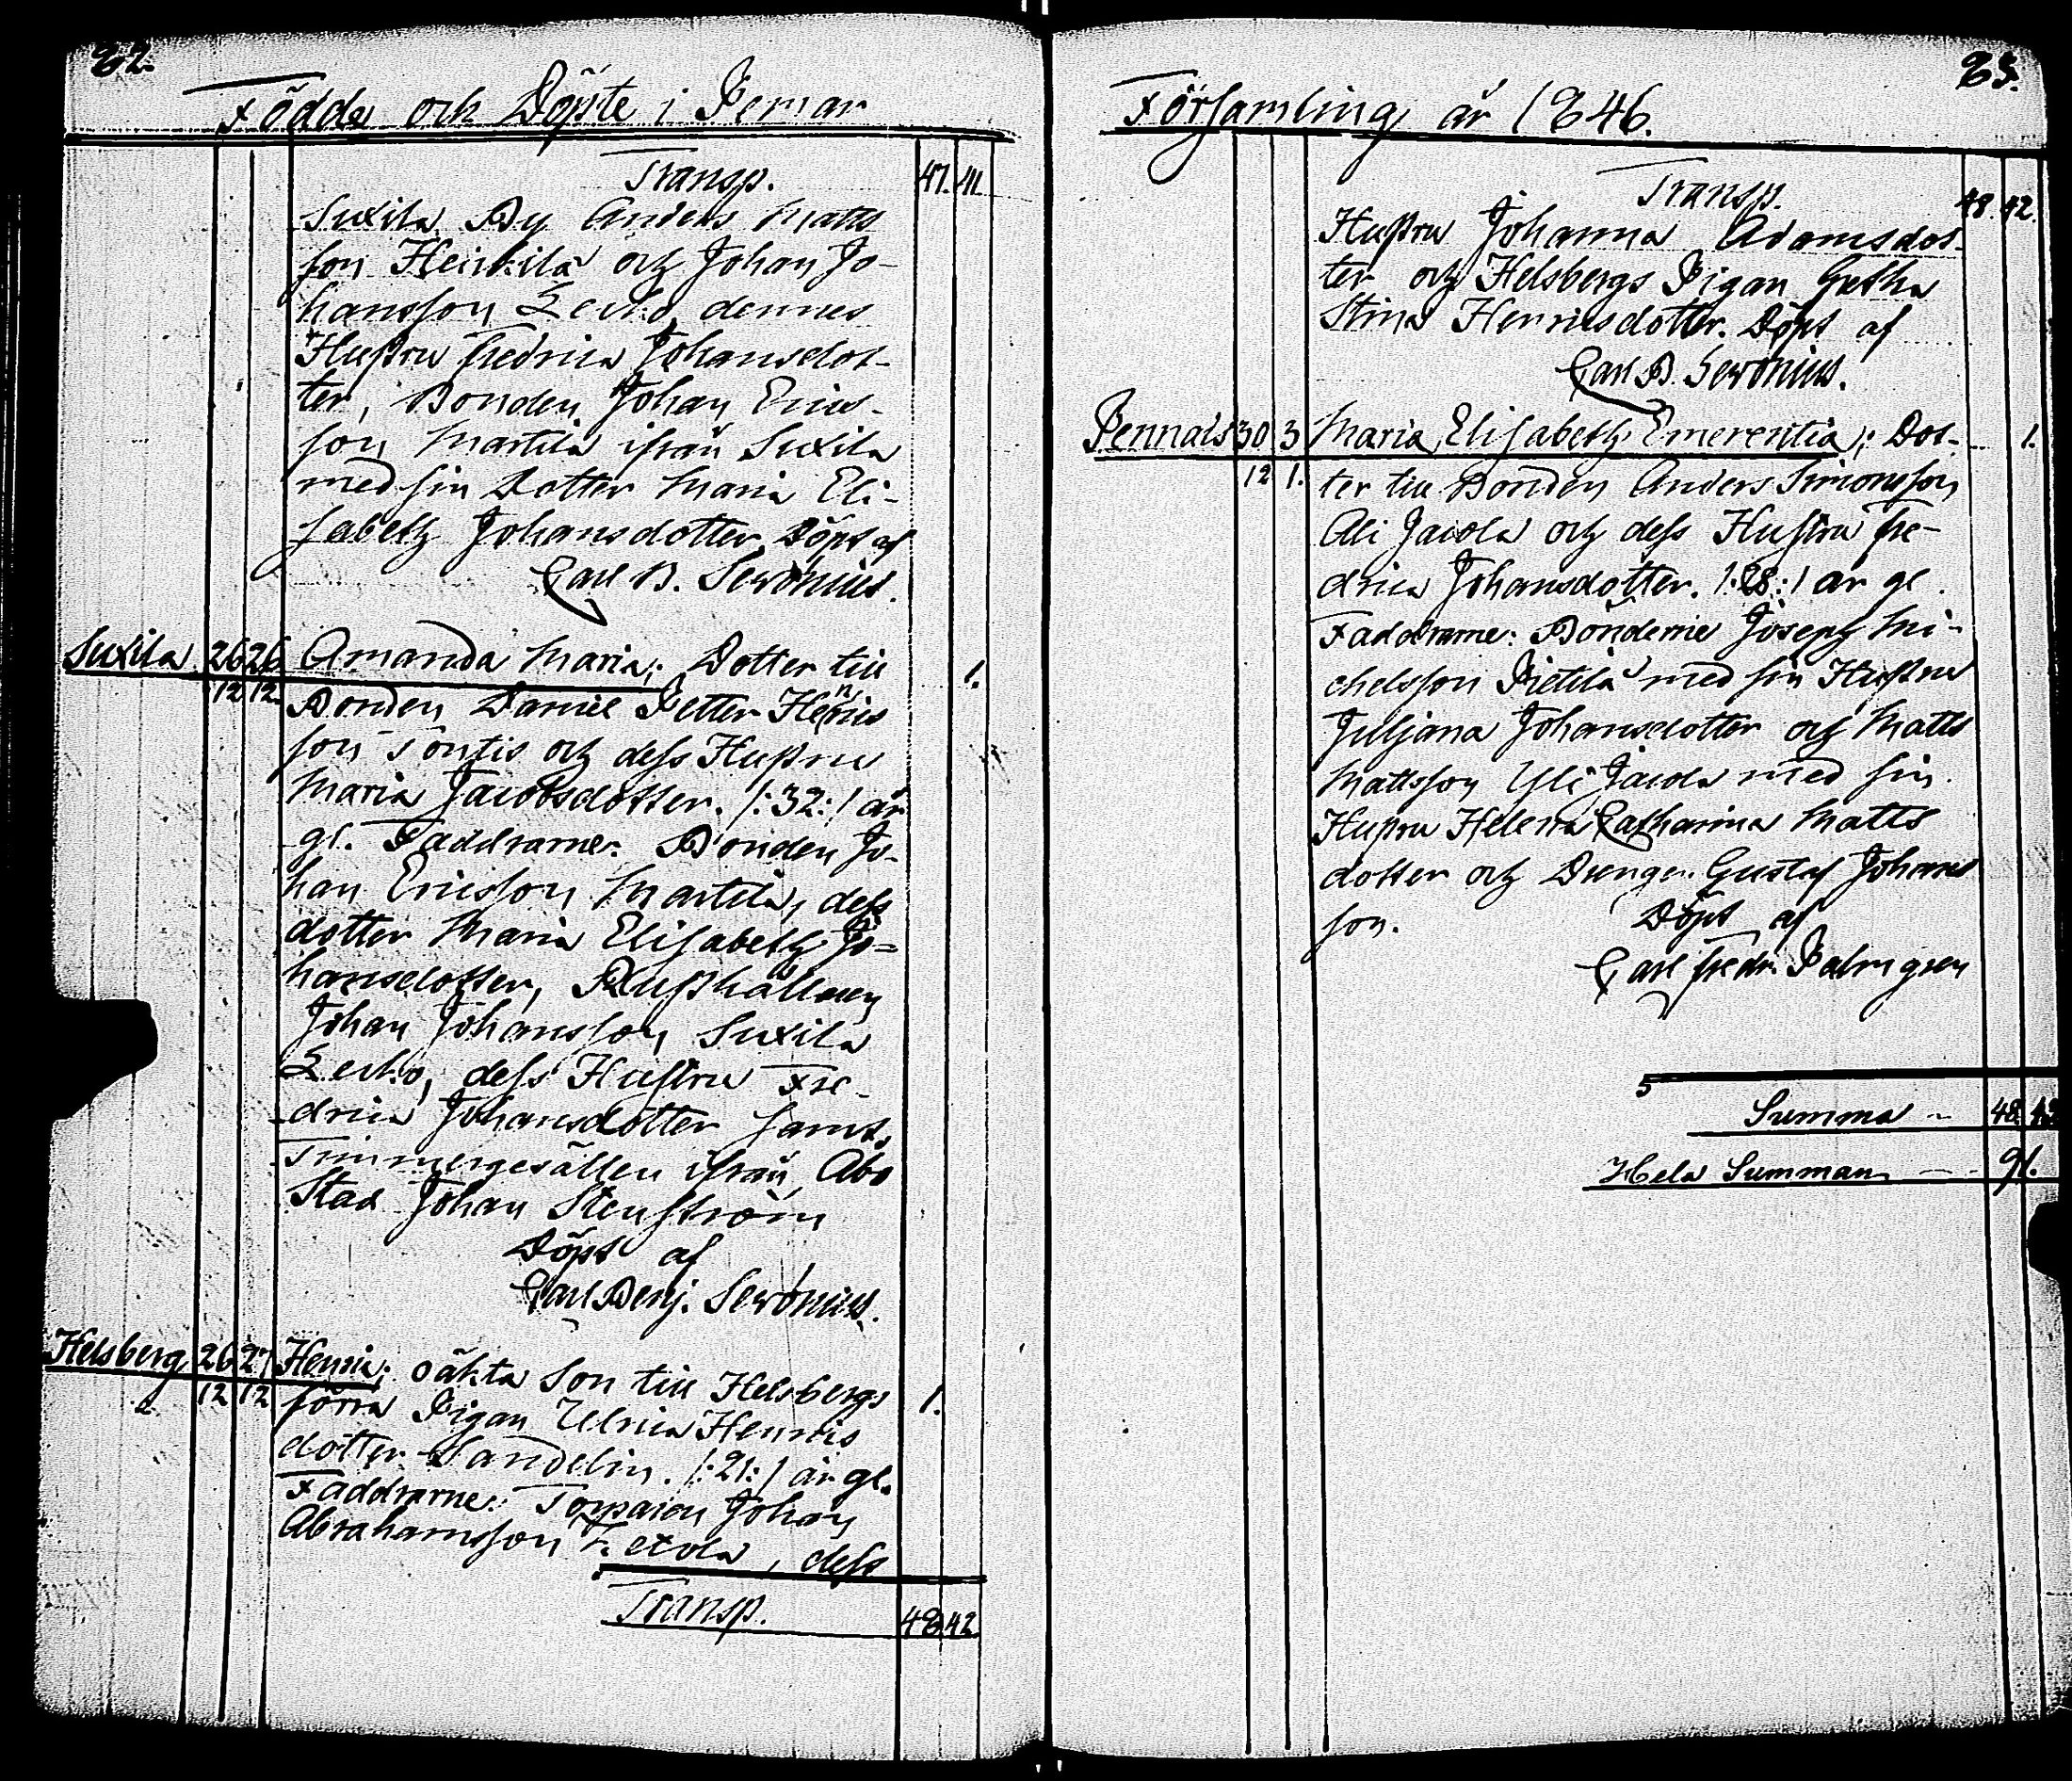 82.
Födde och Döpte i Pemar
Transp. 47. 41.
Suxila By Anders Matts
son Heikkilä och Johan Jo-
hansson Lecko dennes
Hustru Fredrica Johansdot-
ter, Bonden Johan Erics-
son Martila ifrån Suxila
med sin Dotter Maria Eli-
sabeth Johansdotter. Döpt af
Carl B. Seronius.
Suxila 26 26 Amanda Maria; Dotter till 1.
12 12 Bonden Daniel Petter Henrics
son Tontis och dess Hustru
Maria Jacobsdotter. /:32:/ år
gl. Faddrarne: Bonden Jo-
han Ericsson Martila, dess
dotter Maria Elisabeth Jo=
hansdotter, Rusthållaren
Johan Johansson Suxila
Lecko, dess Hustru Fre-
drica Johansdotter samt
Timmergesällen ifrån Åbo
Stad Johan Stenström
Döpt af
Carl Benj. Seronius.
Helsberg 26 27 Henric; oäkta Son till Helsbergs 1.
12 12 förra Pigan Ulrica Henrics
dotter Sandelin. /:21:/ år gl.
Faddrarne: Torparen Johan
Abrahamsson, dess
Transp. 48 42
83.
Församling år 1846.
Transp. 48. 42.
Hustru Johanna Adamsdot-
ter och Helsbergs Pigan Gretha
Stina Henricsdotter. Döpt af
Carl B. Seronius.
Pennais 30 3 Maria Elisabeth Emerentia; Dot- 1.
12 1. ter till Bonden Anders Simonsson
Ali Jacola och dess Hustru Fre-
drica Johansdotter. /:28:/ år gl.
Faddrarne: Bönderne Joseph Mi-
chelsson Pietilä med sin Hustru
Juljana Johansdotter och Matts
Mattsson Yli Jacola med sin
Hustru Helena Catharina Matts
dotter och Drengen Gustaf Johans
son. Döpt af
Carl Fredr. Palmgren
Summa 48. 43.
Hela Summan 91.